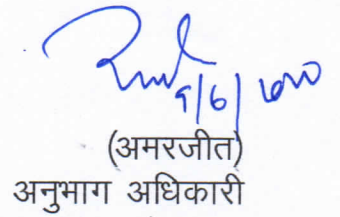 9/6/2020
(अमरजीत)
अनुभाग अधिकारी